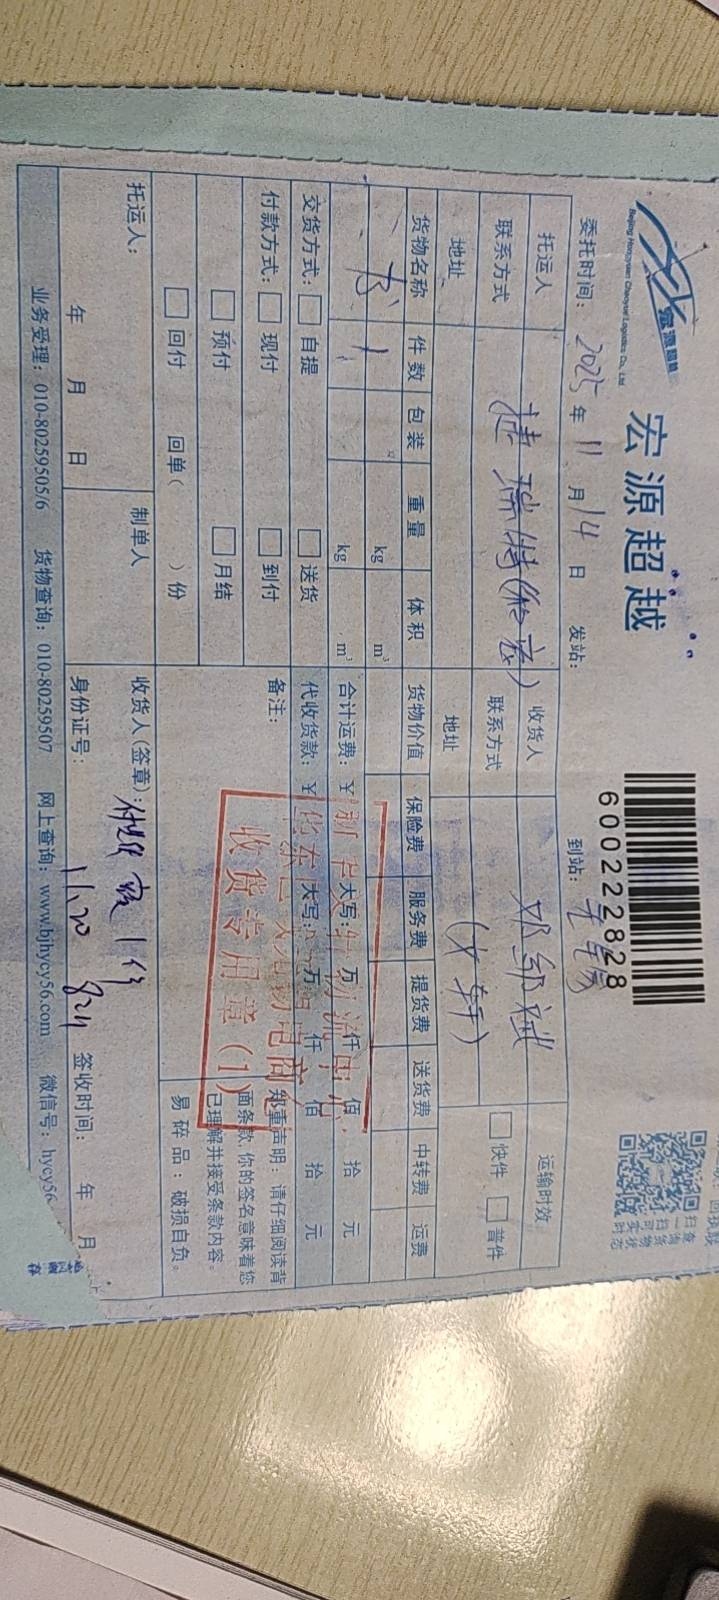 宏源超越
Beijing Hongyuan Chaoyue Logistics Co., Ltd.
600222828
扫一扫
委托时间：2025年11月14日 发站： 到站：
托运人 捷瑞特 收货人 邓绍斌 运输时效
联系方式 联系方式 快件 普件
地址 地址
货物名称 件数 包装 重量 体积 货物价值 保险费 服务费 提货费 送货费 中转费 运费
书 1 kg m³
kg m³ 合计运费：￥ 大写： 万 仟 佰 拾 元
交货方式： 自提 送货 代收货款：￥ 大写： 万 仟 佰 拾 元
付款方式： 现付 到付 备注：
预付 月结
回付 回单（ ）份
郑重声明：请仔细阅读背
面条款，你的签名意味着您
已理解并接受条款内容。
易碎品：破损自负。
收货专用章(1)
托运人： 制单人 收货人(签章)：
年 月 日 身份证号： 11.20 签收时间： 年 月
业务受理：010-80259505/6 货物查询：010-80259507 网上查询：www.bjhycy56.com 微信号：hycy56